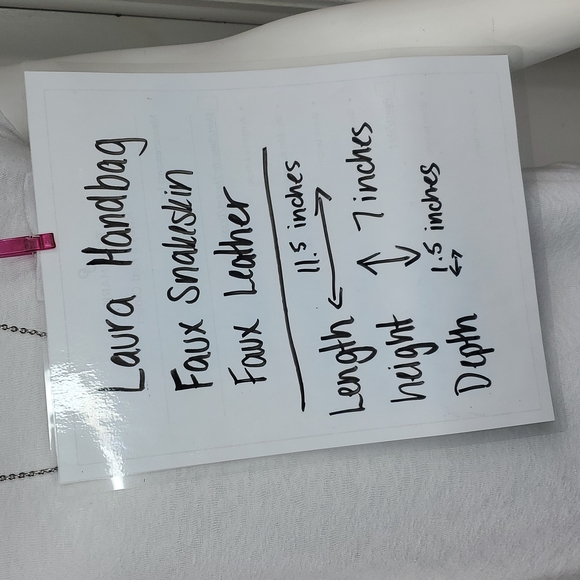 Laura Handbag
Faux Snakeskin
Faux Leather
Length 11.5 inches
height 7 inches
Depth 1.5 inches